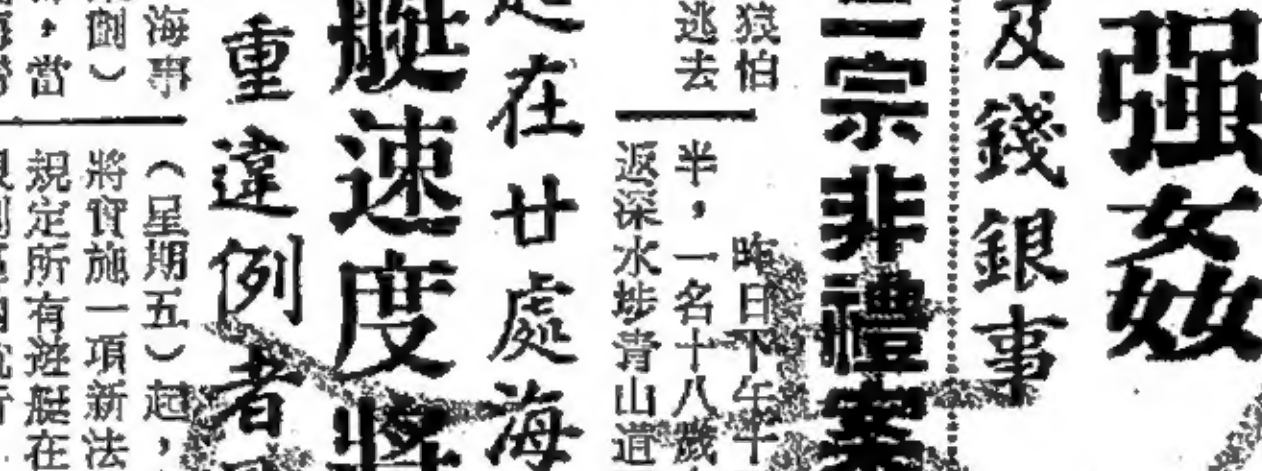 强姦
及錢銀事
二宗非禮案
猿怕
逃去
昨日下午十
半，一名十八歲
返深水埗青山道
在廿處海
艇速度將
重違例者
海事
（星期五）起，
將實施一項新法
規定所有遊艇在